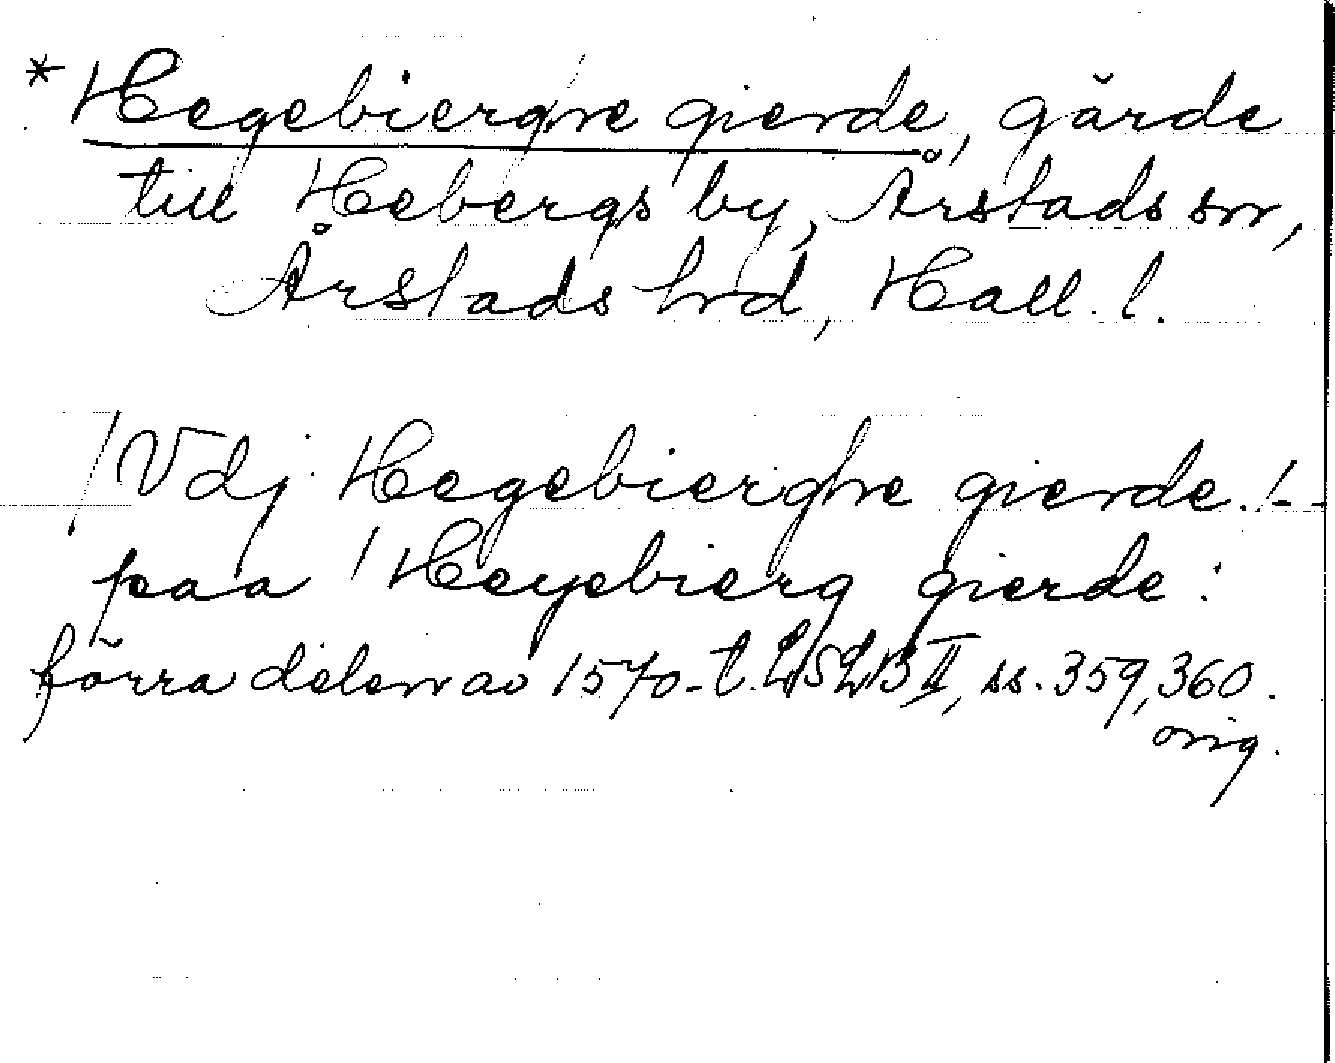 *Hegebierghe gierde, gärde
till Hebergs by, Årstads sn,
Årstads hrd, Hall. l.
/Vdj Hegebierghe gierde./--
paa / Heyebierg gierde:
förra delen av 1570-t. LSLB II, ss. 359, 360.
orig.